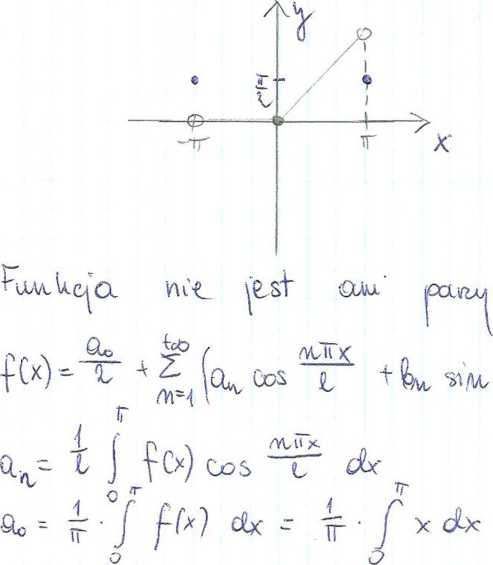 y
π/2
-π π x
Funkcja nie jest ani parzy
f(x) = a₀/2 + ∑ₙ₌₁^{+∞} (aₙ cos nπx/l + bₙ sin
aₙ = 1/l ∫₀^π f(x) cos nπx/l dx
a₀ = 1/π · ∫₀^π f(x) dx = 1/π · ∫₀^π x dx